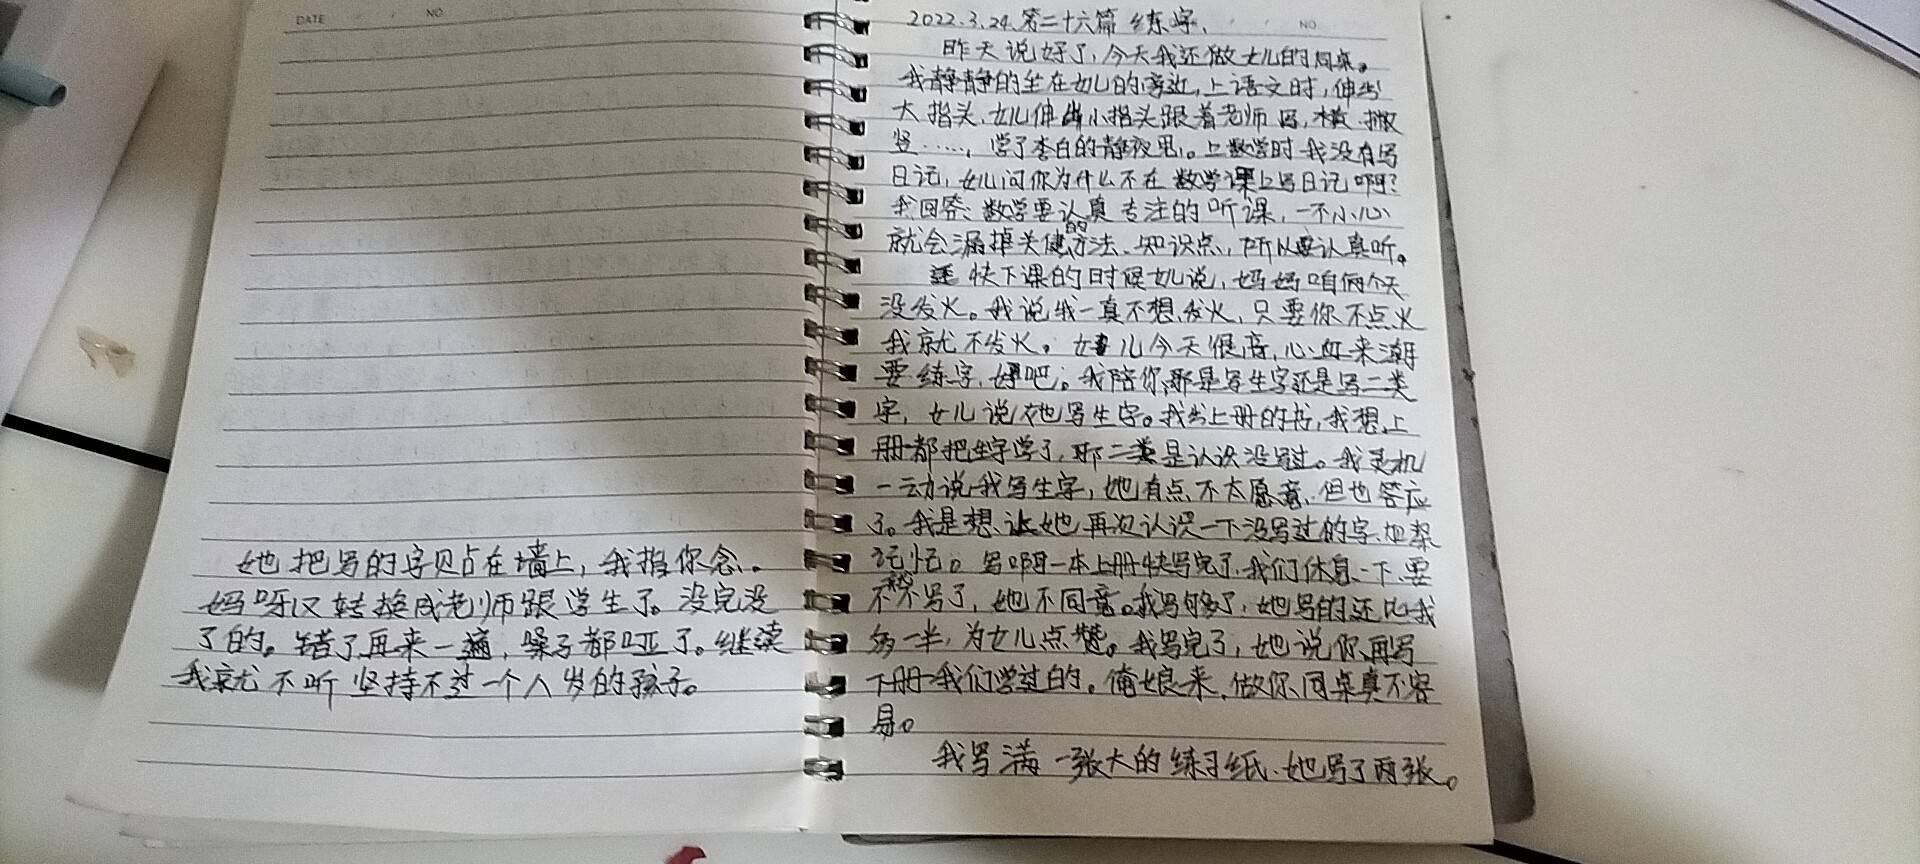 DATE / / NO.
2022.3.24.第二十六篇 练字. / / NO.
昨天说好了,今天我还做女儿的同桌。
我静静的坐在女儿的旁边,上语文时,伸出
大指头,女儿伸出小指头跟着老师写,横.撇
竖……,学了李白的静夜思。上数学时我没有写
日记,女儿问你为什么不在数学课上写日记啊?
我回答:数学要认真专注的听课,一不小心
就会漏掉关健的方法、知识点,所以要认真听。
快下课的时候女儿说,妈妈咱俩今天
没发火。我说我一直不想发火,只要你不点火
我就不发火。女儿今天很高,心血来潮
要练字,好吧。我陪你,那是写生字还是写二类
字,女儿说她写生字。我出上册的书,我想上
册都把生字学了,那二类是认识没写过。我灵机
一动说我写生字,她有点不太愿意,但也答应
了。我是想让她再次认识一下没写过的字,加深
记忆。写啊写一本上册快写完了,我们休息一下,要
不不写了,她不同意。我写够了,她写的还比我
多一半,为女儿点赞。我写完了,她说你再写
下册我们学过的。俺娘来,做你同桌真不容
易。
我写满一张大的练习纸.她写了两张。
她把写的字贴在墙上,我指你念。
妈呀又转换成老师跟学生了。没完没
了的。错了再来一遍,嗓子都哑了。继续
我就不听坚持不过一个八岁的孩子。